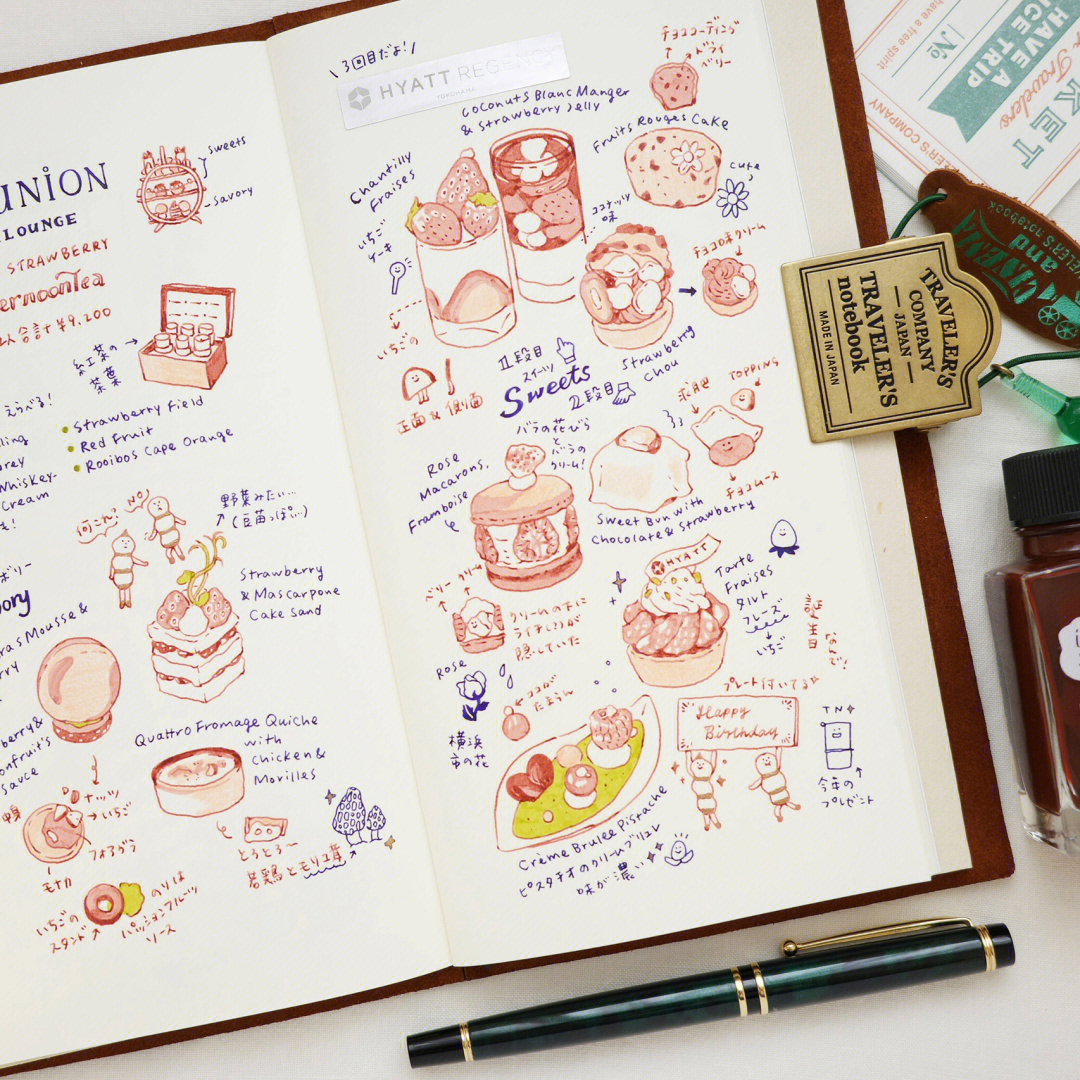 UNION
LOUNGE
STRAWBERRY
ernoonTea
2人合計 ¥9,200
sweets
savory
紅茶の
茶葉
えらべる!
Strawberry Field
Red Fruit
Rooibos Cape Orange
ling
rey
Whiskey-
Cream
何これ!
NO!
野菜みたい…
(豆苗っぽい…)
Strawberry
& Mascarpone
Cake Sand
ory
ras Mousse &
rry
berry &
onfruit's
sauce
Quattro Fromage Quiche
with
chicken &
Morilles
ナッツ
いちご
フォアグラ
モナカ
とろとろ〜
若鶏とモリーユ茸
いちごの
スタンド
のりは
パッションフルーツ
ソース
3回目だよ!
HYATT REGENC
YOKOHAMA
チョココーティング
ドライ
ベリー
Coconuts Blanc Manger
& Strawberry Jelly
Fruits Rouges Cake
cute
Chantilly
Fraises
いちご
ケーキ
ココナッツ
味
チョコのホクリーム
いちごの
正面 & 側面
1段目
スイーツ
Sweets
2段目
Strawberry
chou
バラの花びら
と
バラの
クリーム!
求肥
TOPPING
チョコムース
Rose
Macarons,
Framboise
Sweet Bun with
Chocolate & Strawberry
ベリー クリーム
クリームの下に
ライチ(?)が
隠していた
HYATT
Tarte
Fraises
タルト
フレーズ
いちご
Rose
横浜
市の花
ココが
たまらん
プレート付いてる
Happy
Birthday
TN
今年の
プレゼント
Crème Brulee Pistache
ピスタチオのクリームブリュレ
味が濃い
TRAVELER'S
COMPANY
JAPAN
TRAVELER'S
notebook
MADE IN JAPAN
HAVE A
NICE TRIP
No
have a free spirit
Travelers
KET
TRAVELER'S COMPANY
CINEMA
and
TRAVELER'S notebook